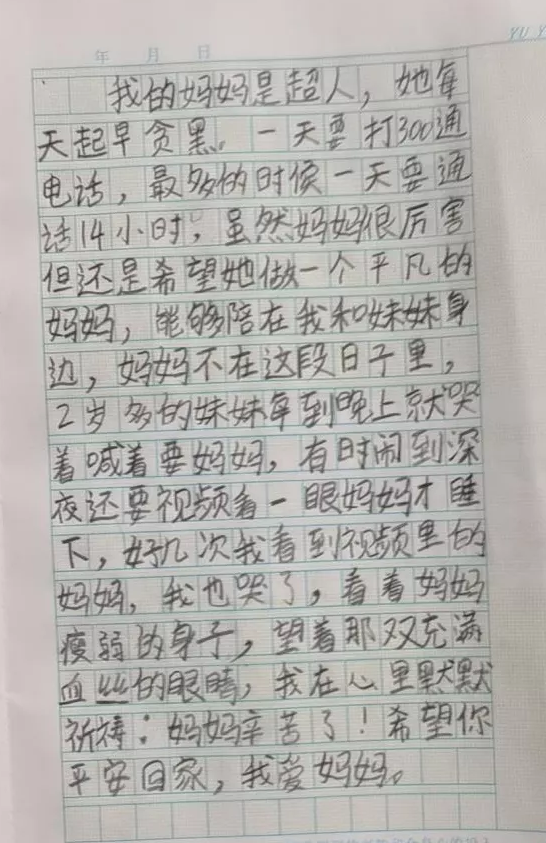 年 月 日
我的妈妈是超人，她每
天起早贪黑，一天要打300通
电话，最多的时候一天要通
话14小时，虽然妈妈很厉害
但还是希望她做一个平凡的
妈妈，能够陪在我和妹妹身
边，妈妈不在这段日子里，
2岁多的妹妹每到晚上就哭
着喊着要妈妈，有时闹到深
夜还要视频看一眼妈妈才睡
下，好几次我看到视频里的
妈妈，我也哭了，看着妈妈
瘦弱的身子，望着那双充满
血丝的眼睛，我在心里默默
祈祷：妈妈辛苦了！希望你
平安回家，我爱妈妈。